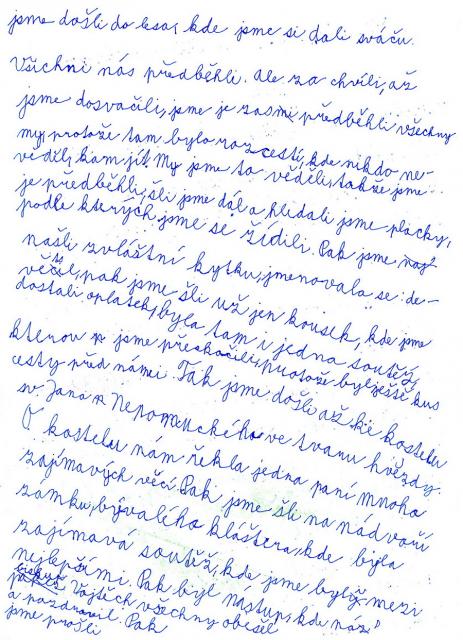 jsme došli do lesa, kde jsme si dali sváču.
Všichni nás předběhli. Ale za chvíli, až
jsme dosvačili, jsme je zasmi předběhli všechny
my, protože tam bylo rozcestí, kde nikdo ne-
věděl, kam jít. My jsme to věděli, takže jsme
je předběhli, šli jsme dál a hledali jsme placky,
podle kterých jsme se řídili. Pak jsme
našli zvláštní kytku, jmenovala se: de-
věťsil, pak jsme šli už jen kousek, kde jsme
dostali oplatek, byla tam i jedna soutěž,
kterou jsme přeskočili, protože byl ještě kus
cesty před námi. Tak jsme došli až ke kostelu
sv. Jana Nepomuckého ve tvaru hvězdy.
O kostelu nám řekla jedna paní mnoho
zajímavých věcí. Pak jsme šli na nádvoří
zámku, bývalého kláštera, kde byla
zajímavá soutěž, kde jsme byli mezi
nejlepšími. Pak byl nástup, kde nás
biskup Vojtěch všechny obešel
a pozdravil. Pak
jsme prošli